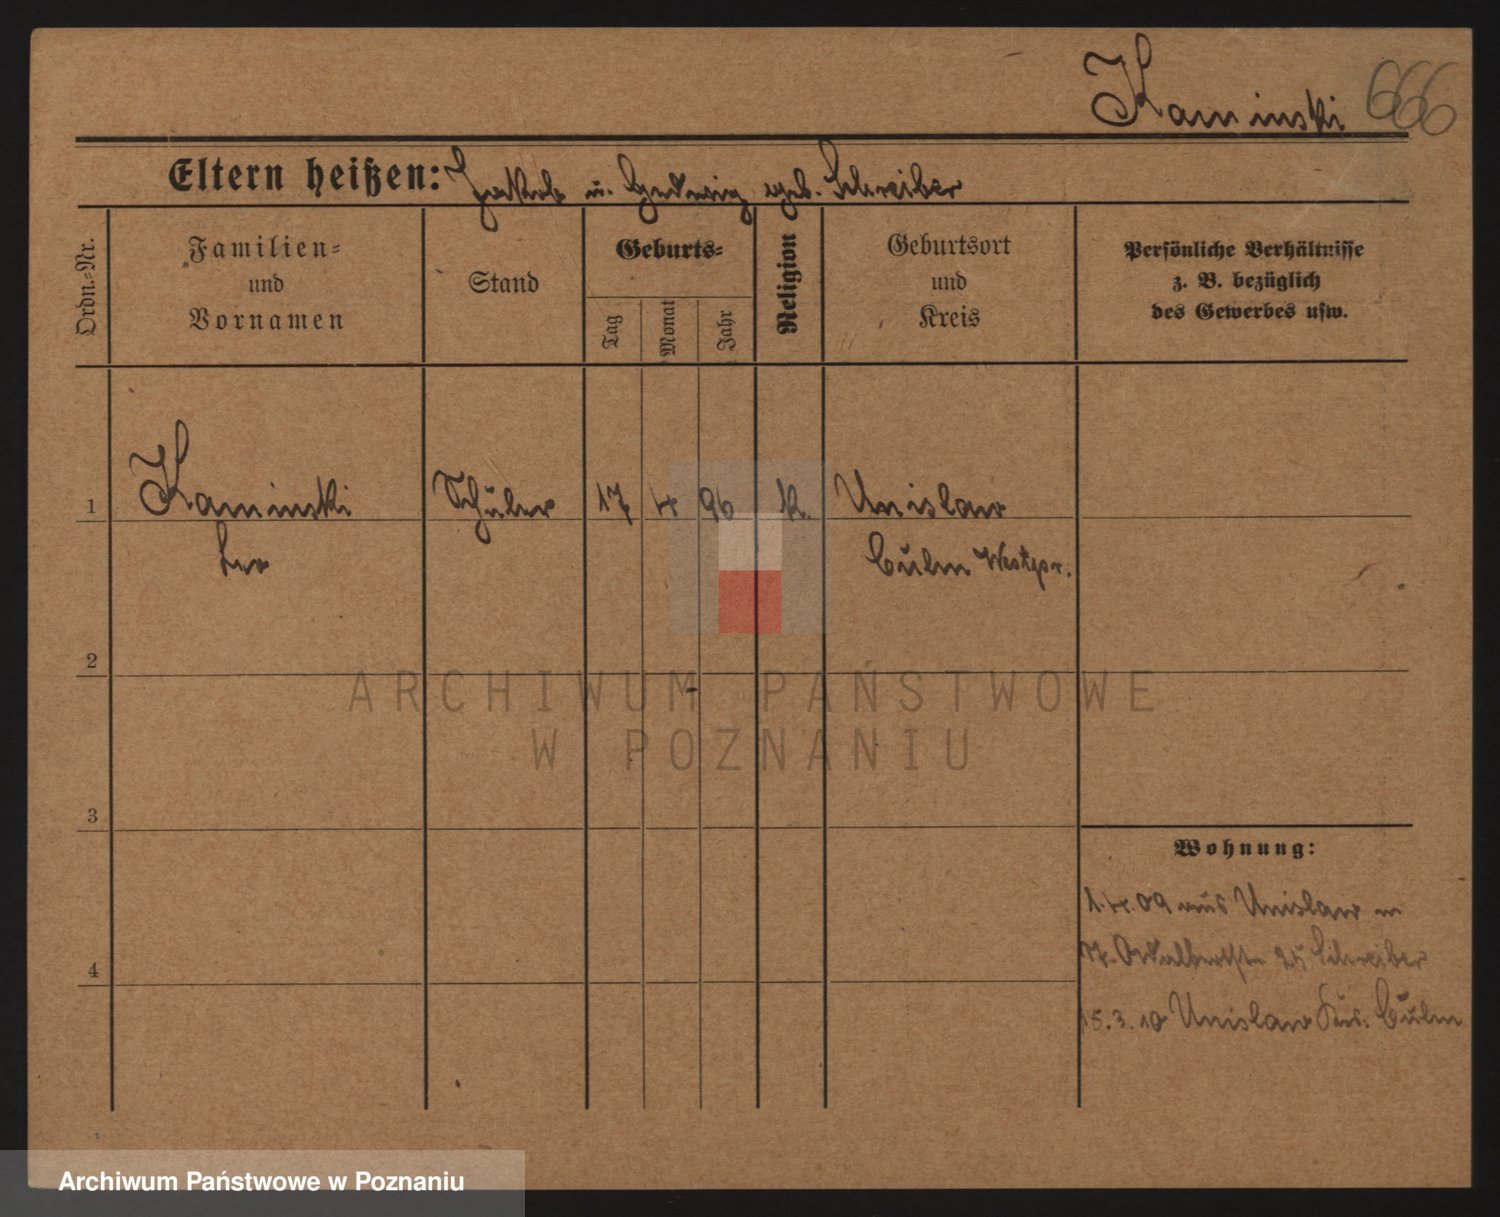 Kaminski 666
Eltern heißen: Jakob u. Hedwig geb. Schreiber
Ordn.-Nr.
Familien-
und
Vornamen
Stand
Geburts-
Tag
Monat
Jahr
Religion
Geburtsort
und
Kreis
Persönliche Verhältnisse
z. B. bezüglich
des Gewerbes usw.
1 Kaminski Schüler 17 4 96 k. Unislaw
Leo Culm Westpr.
2
3
4
Wohnung:
1.4.09 aus Unislaw n
Adalbertstr 25 Schreiber
15.3.10 Unislaw Krs. Culm
ARCHIWUM PAŃSTWOWE
W POZNANIU
Archiwum Państwowe w Poznaniu